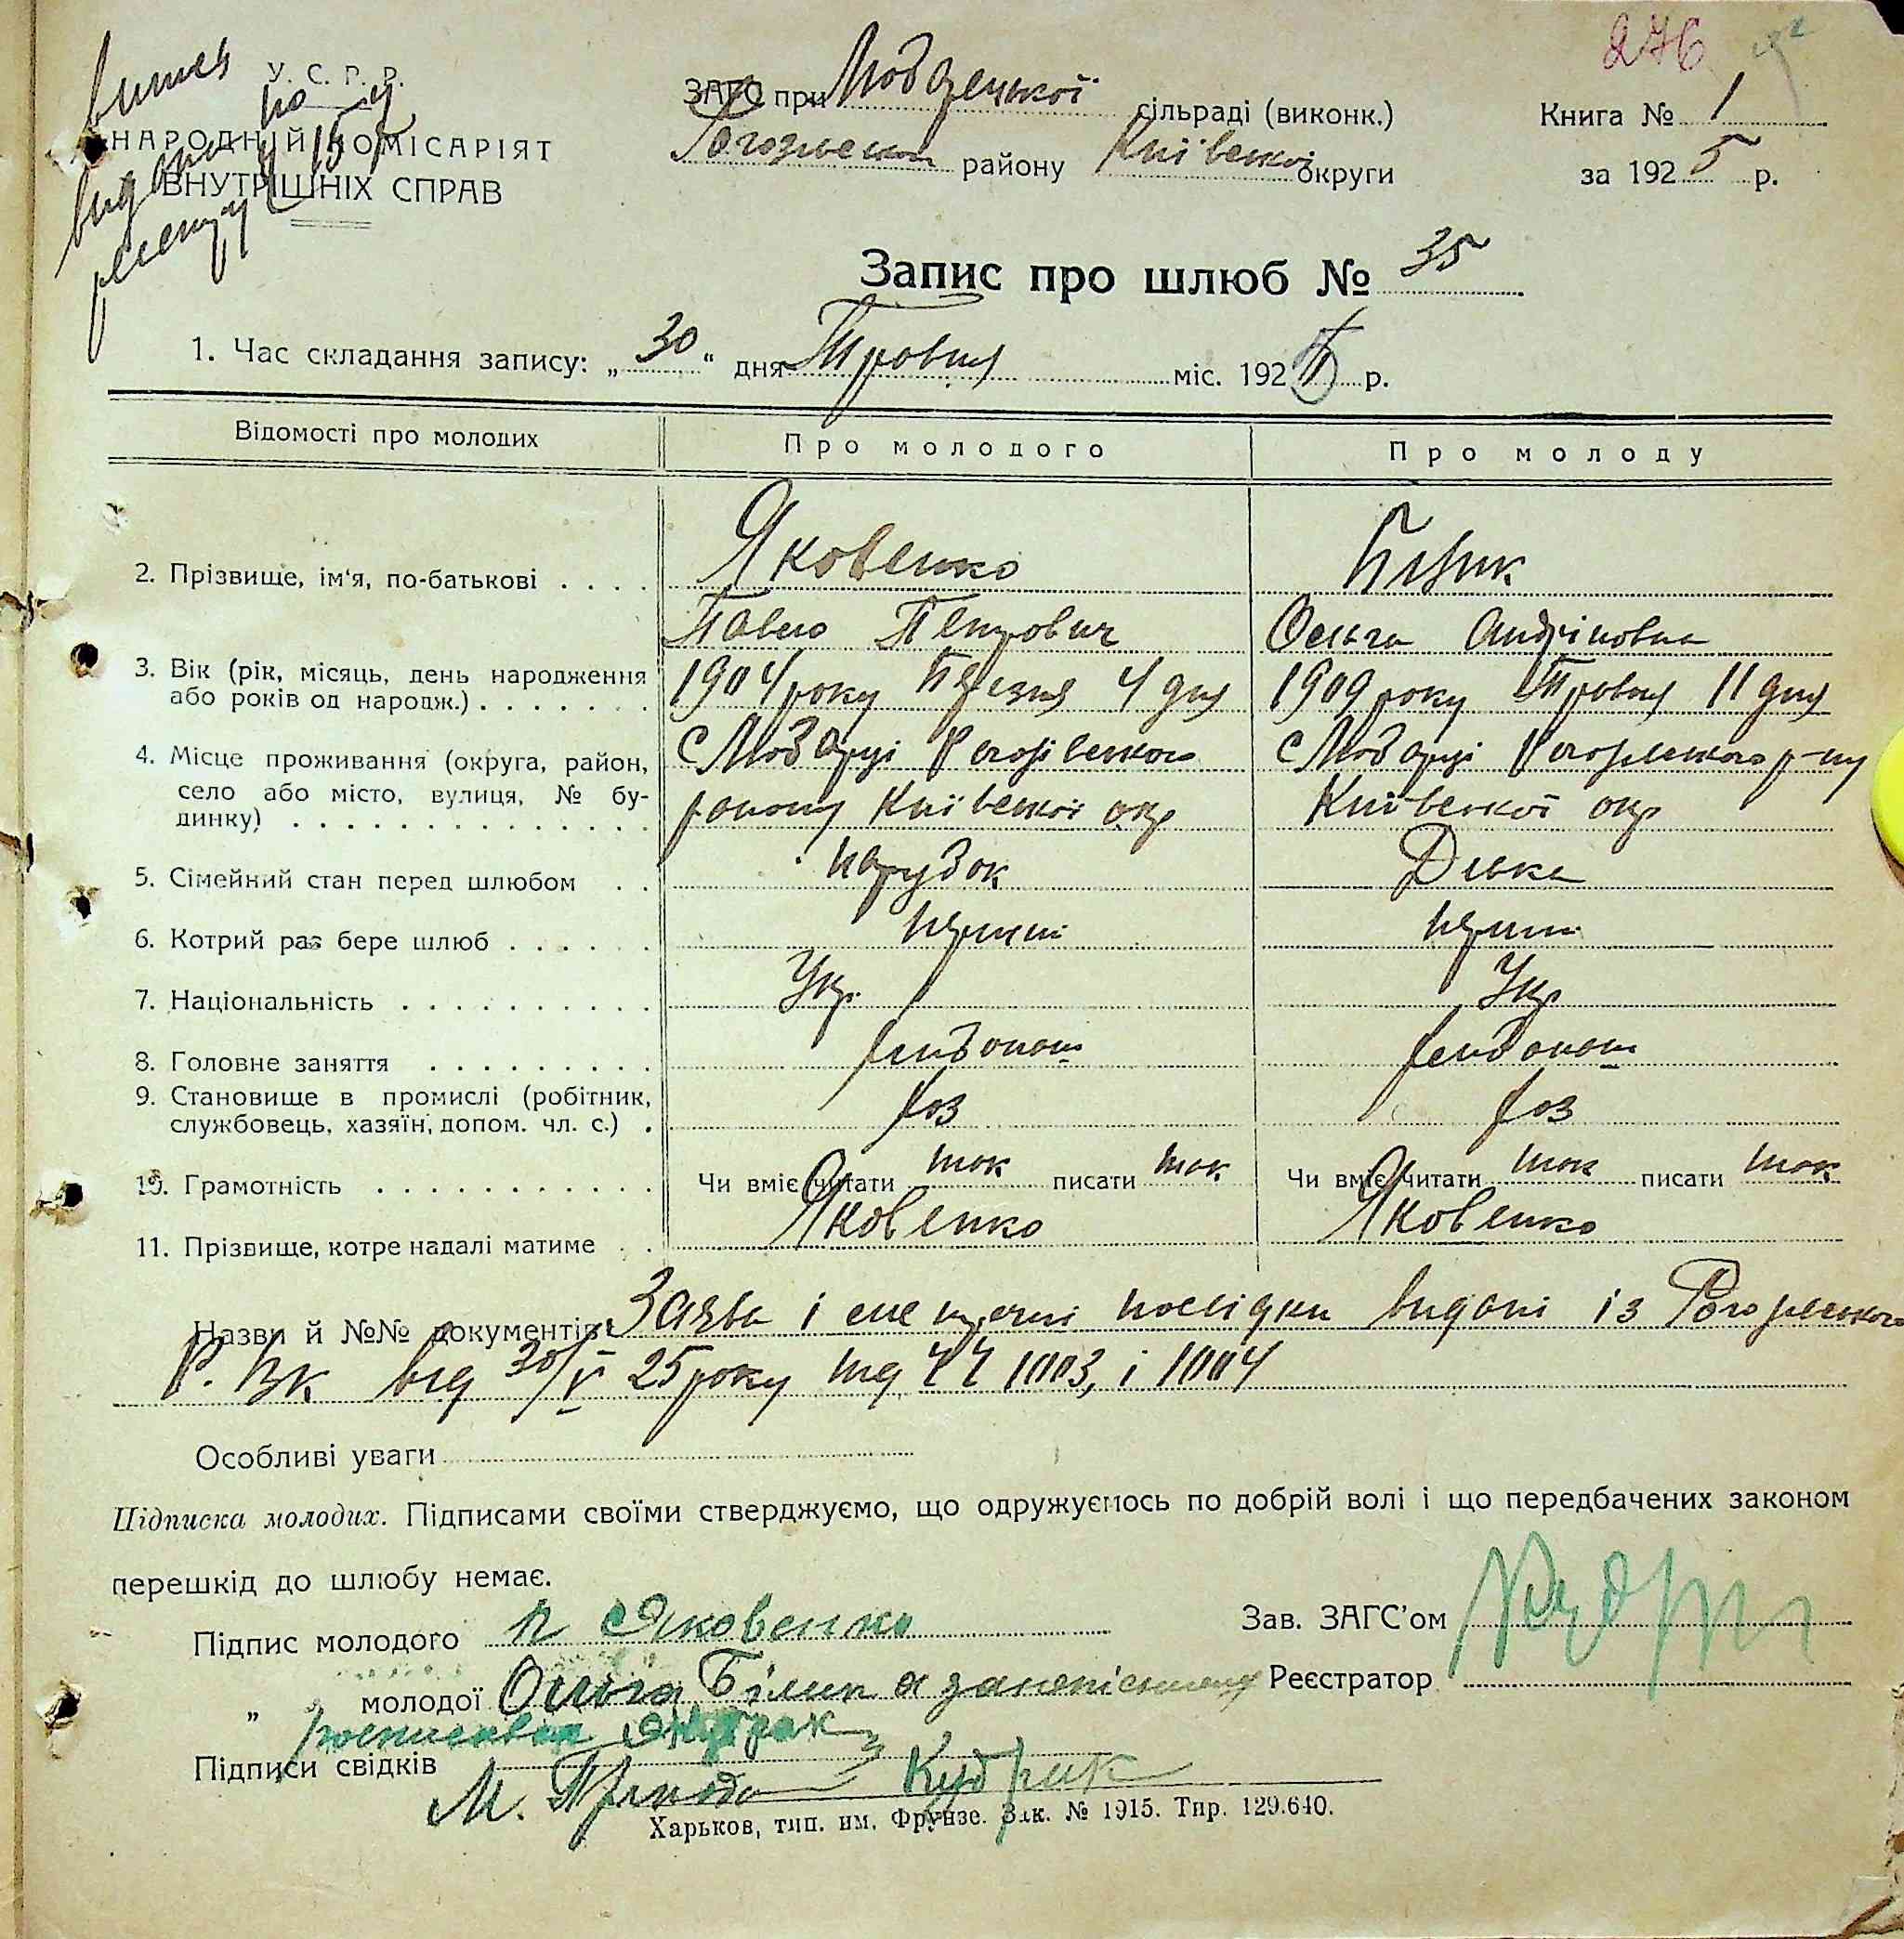 276
У. С. Р. Р.
НАРОДНІЙ КОМІСАРІЯТ
ВНУТРІШНІХ СПРАВ
ЗАГС при сільраді (виконк.)
району Київської округи
Книга № 1
за 1925 р.
Запис про шлюб № 35
1. Час складання запису: „30“ дня Травня міс. 192 р.
Відомості про молодих
Про молодого
Про молоду
2. Прізвище, ім‘я, по-батькові
Яковенко
Білик
Павло Петрович
Ольга Андріновна
3. Вік (рік, місяць, день народження
або років од народж.)
1904 року Березня 4 дня
1909 року Травня 11 дня
4. Місце проживання (округа, район,
село або місто, вулиця, № бу-
динку)
с
району Київської окр
с р-ну
Київської окр
5. Сімейний стан перед шлюбом
парубок
Дівка
6. Котрий раз бере шлюб
перший
перший
7. Національність
Укр.
Укр
8. Головне заняття
9. Становище в промислі (робітник,
службовець, хазяїн, допом. чл. с.)
10. Грамотність
Чи вміє читати так писати так
Чи вміє читати так писати так
11. Прізвище, котре надалі матиме
Яковенко
Яковенко
Назви й №№ документів: Заява і посвідки видані із
Р. В К від 30/V 25 року 1003, і 1004
Особливі уваги
Підписка молодих. Підписами своїми стверджуємо, що одружуємось по добрій волі і що передбачених законом
перешкід до шлюбу немає.
Підпис молодого П Яковенко
Зав. ЗАГС’ом
„ молодої Ольга Білик а
Реєстратор
Підписи свідків
М. Кудрик
Харьков, тип. им. Фрунзе. Зак. № 1915. Тир. 129.640.